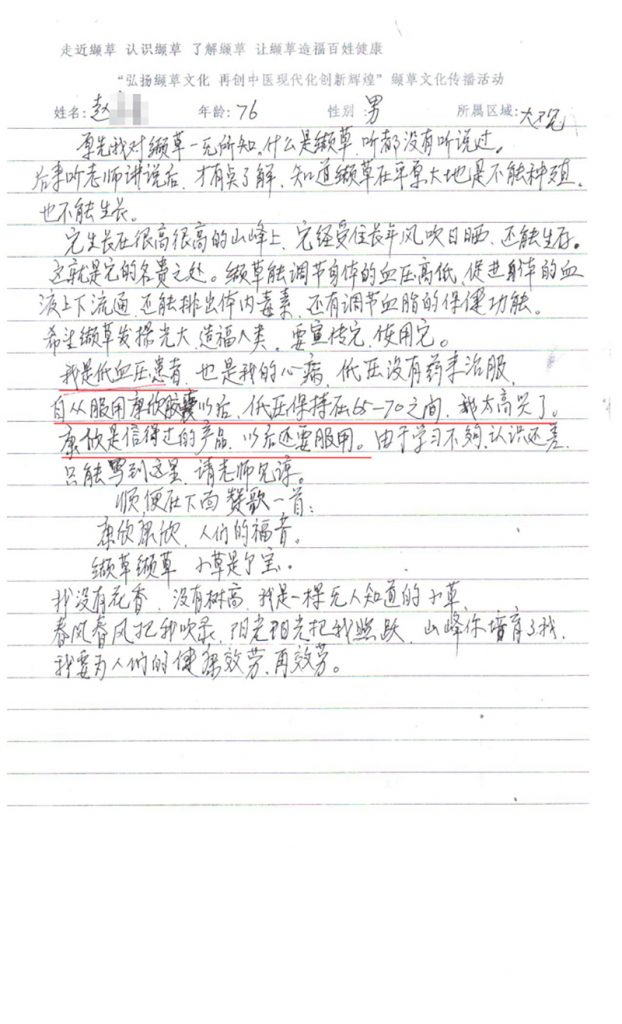 走近缬草 认识缬草 了解缬草 让缬草造福百姓健康
“弘扬缬草文化 再创中医现代化创新辉煌”缬草文化传播活动
姓名: 赵 年龄: 76 性别 男 所属区域: 大观
原先我对缬草一无所知。什么是缬草,听都没有听说过。
后来听老师讲说后,才有点了解,知道缬草在平原大地是不能种殖,
也不能生长。
它生长在很高很高的山峰上、它经受住长年风吹日晒、还能生存。
这就是它的名贵之处。缬草能调节身体的血压高低、促进身体的血
液上下流通、还能排出体内毒素、还有调节血脂的保健功能。
希望缬草发揚光大、造福人类、要宣传它、使用它。
我是低血压患者,也是我的心病、低压没有药来治服、
自从服用康欣胶囊以后、低压保持在65-70之间、我太高兴了。
康欣是信得过的产品、以后还要服用。由于学习不够、认识还差、
只能写到这里、请老师见谅。
顺便在下面赞歌一首:
康欣康欣、人们的福音。
缬草缬草 小草是个宝。
我没有花香、没有树高、我是一棵无人知道的小草、
春风春风把我吹绿、阳光阳光把我照跃、山峰你培育了我、
我要为人们的健康效劳、再效劳。